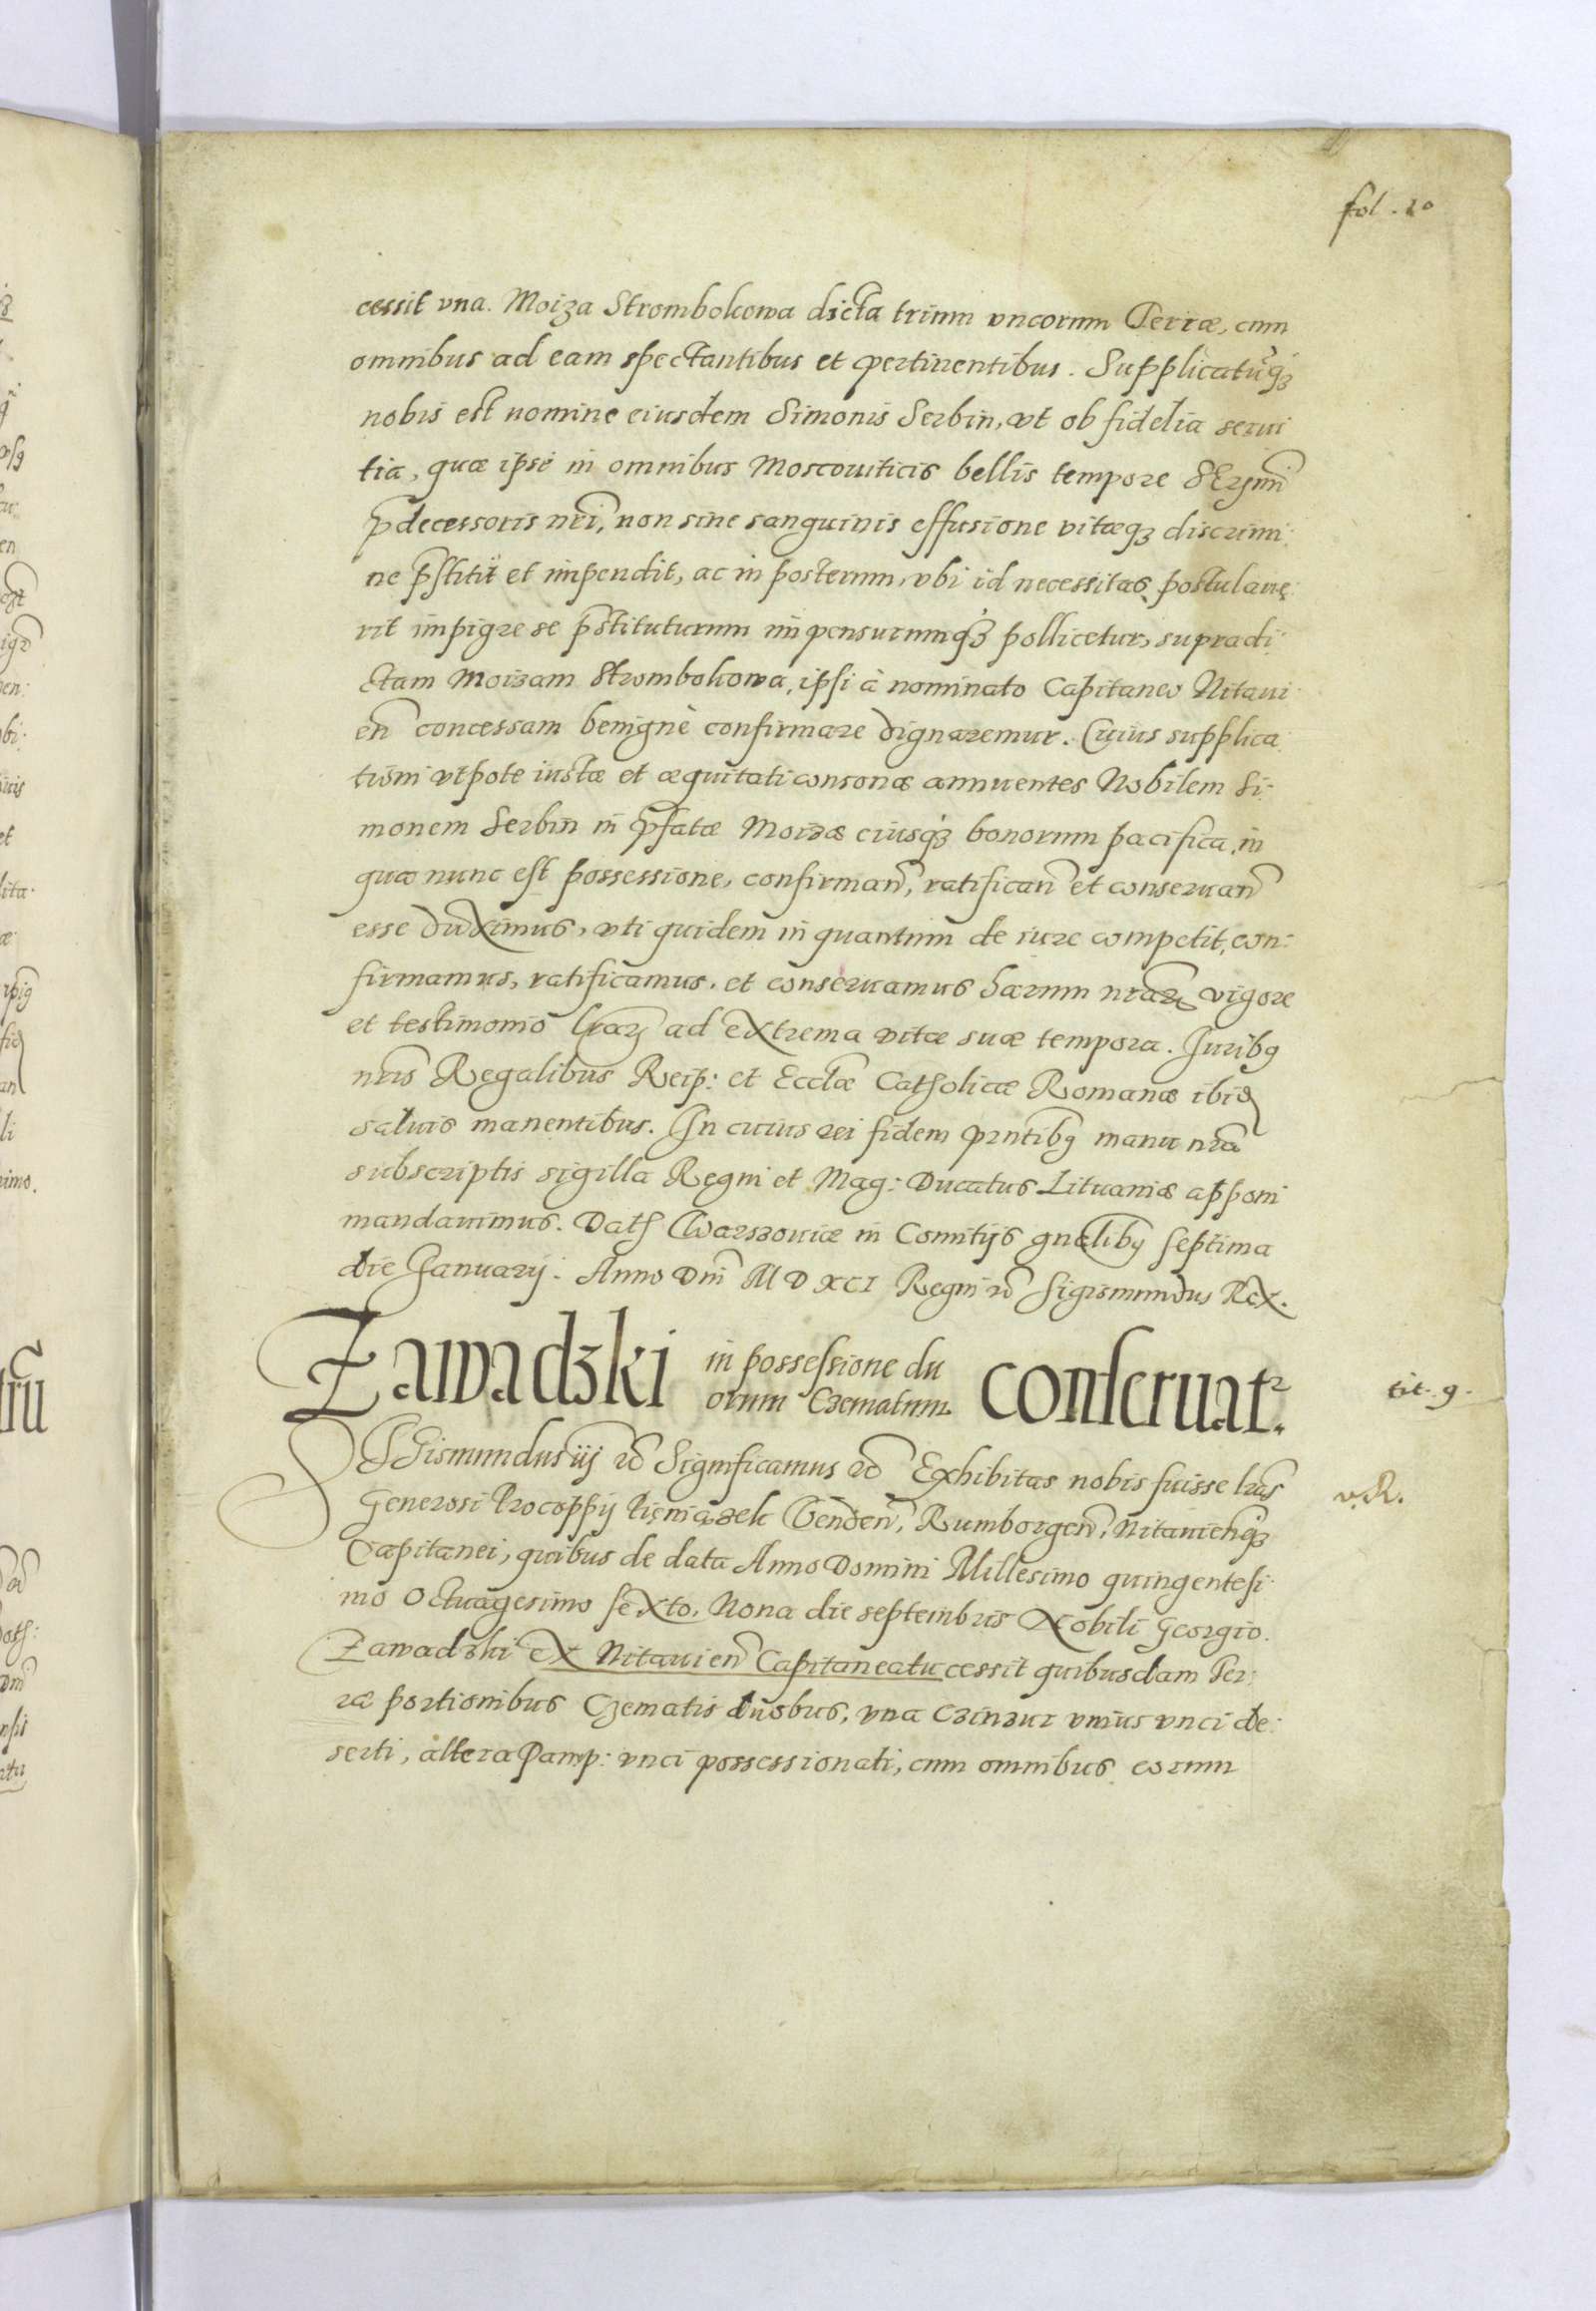 fol. 20
cessit vna. Moiza Strombokowa dicta trium vncorum Terræ, cum
omnibus ad eam spectantibus et pertinentibus. Supplicatũq́ꝫ
nobis est nomine eiusdem Simonis Serbin, vt ob fidelia serui
tia, quæ ipse in omnibus Moscouiticis bellis tempore
p̃decessoris nr̃i, non sine sanguinis effusione vitæqꝫ discrimi:
ne p̃stitit et impendit, ac in posterum, vbi id necessitas postulaue:
rit impigre se p̃stiturum impensurumq́ꝫ pollicetur, supradi:
ctam Moizam Strombokowa, ipsi à nominato Capitaneo Nitaui:
eñ concessam benignè confirmare dignaremur. Cuius supplica
tioni vtpote iustæ et æquitati consonæ annuentes Nobilem Si:
monem Serbin in p̃fatæ Moizæ eiusq́ꝫ bonorum pacifica, in
qua nunc est possessione, confirmañ, ratificañ et conseruañ
esse duximus, vti quidem in quantum de iure competit, con:
firmamus, ratificamus, et conseruamus harum nr̃arꝝ vigore
et testimonio lr̃arꝝ ad extrema vitæ suæ tempora. Iuribꝯ
nr̃is Regalibus Reip: et Eccl̃æ Catholicæ Romanæ ibid
saluis manentibus. In cuius rei fidem prñtibꝯ manu nr̃a
subscriptis sigilla Regni et Mag: Ducatus Lituaniæ apponi
mandauimus. Dath Warszouiæ in Comitijs gñalibꝯ septima
die Ianuarij. Anno Dñi M D XCI Regni ꝛc̃ Sigismundus Rex.
Zawadzki in possessione du
orum Czematum conseruatꝛ.
tit. 9.
SIGismundus iij ꝛc̃ Significamus ꝛc̃ Exhibitas nobis fuisse lr̃as
v. R.
Generosi Procopij Pieniążek Vendeñ, Rumborgeñ, Nitauieñq́ꝫ
Capitanei, quibus de data Anno Domini Millesimo quingentesi:
mo Octuagesimo sexto, Nona die septembris Nobili Georgio
Zawadzki ex Nitauieñ Capitaneatu cessit quibusdam Ter:
ræ portionibus Czematis duobus, vna Czinzur vnius vnci de:
serti, altera Pamp: vnci possessionati, cum omnibus eorum